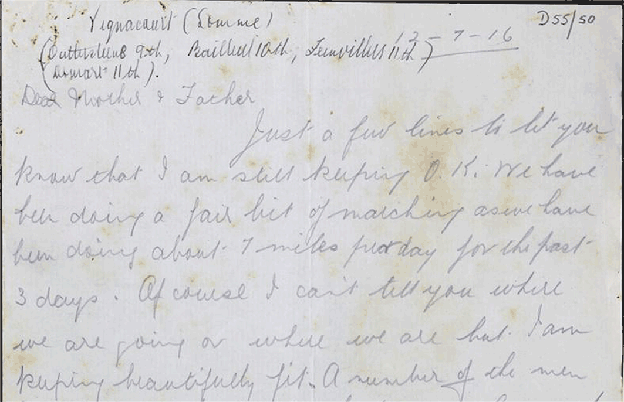 Vignacourt (Somme)
D55/50
12-7-16
(Outtersteene 9th, Bailleul 10th, Fienvillers 11th)
(Domart 11th).
Dear Mother & Father
Just a few lines to let you
know that I am still keeping O.K. We have
been doing a fair bit of marching as we have
been doing about 7 miles per day for the past
3 days. Of course I can't tell you where
we are going or where we are but I am
keeping beautifully fit. A number of the men